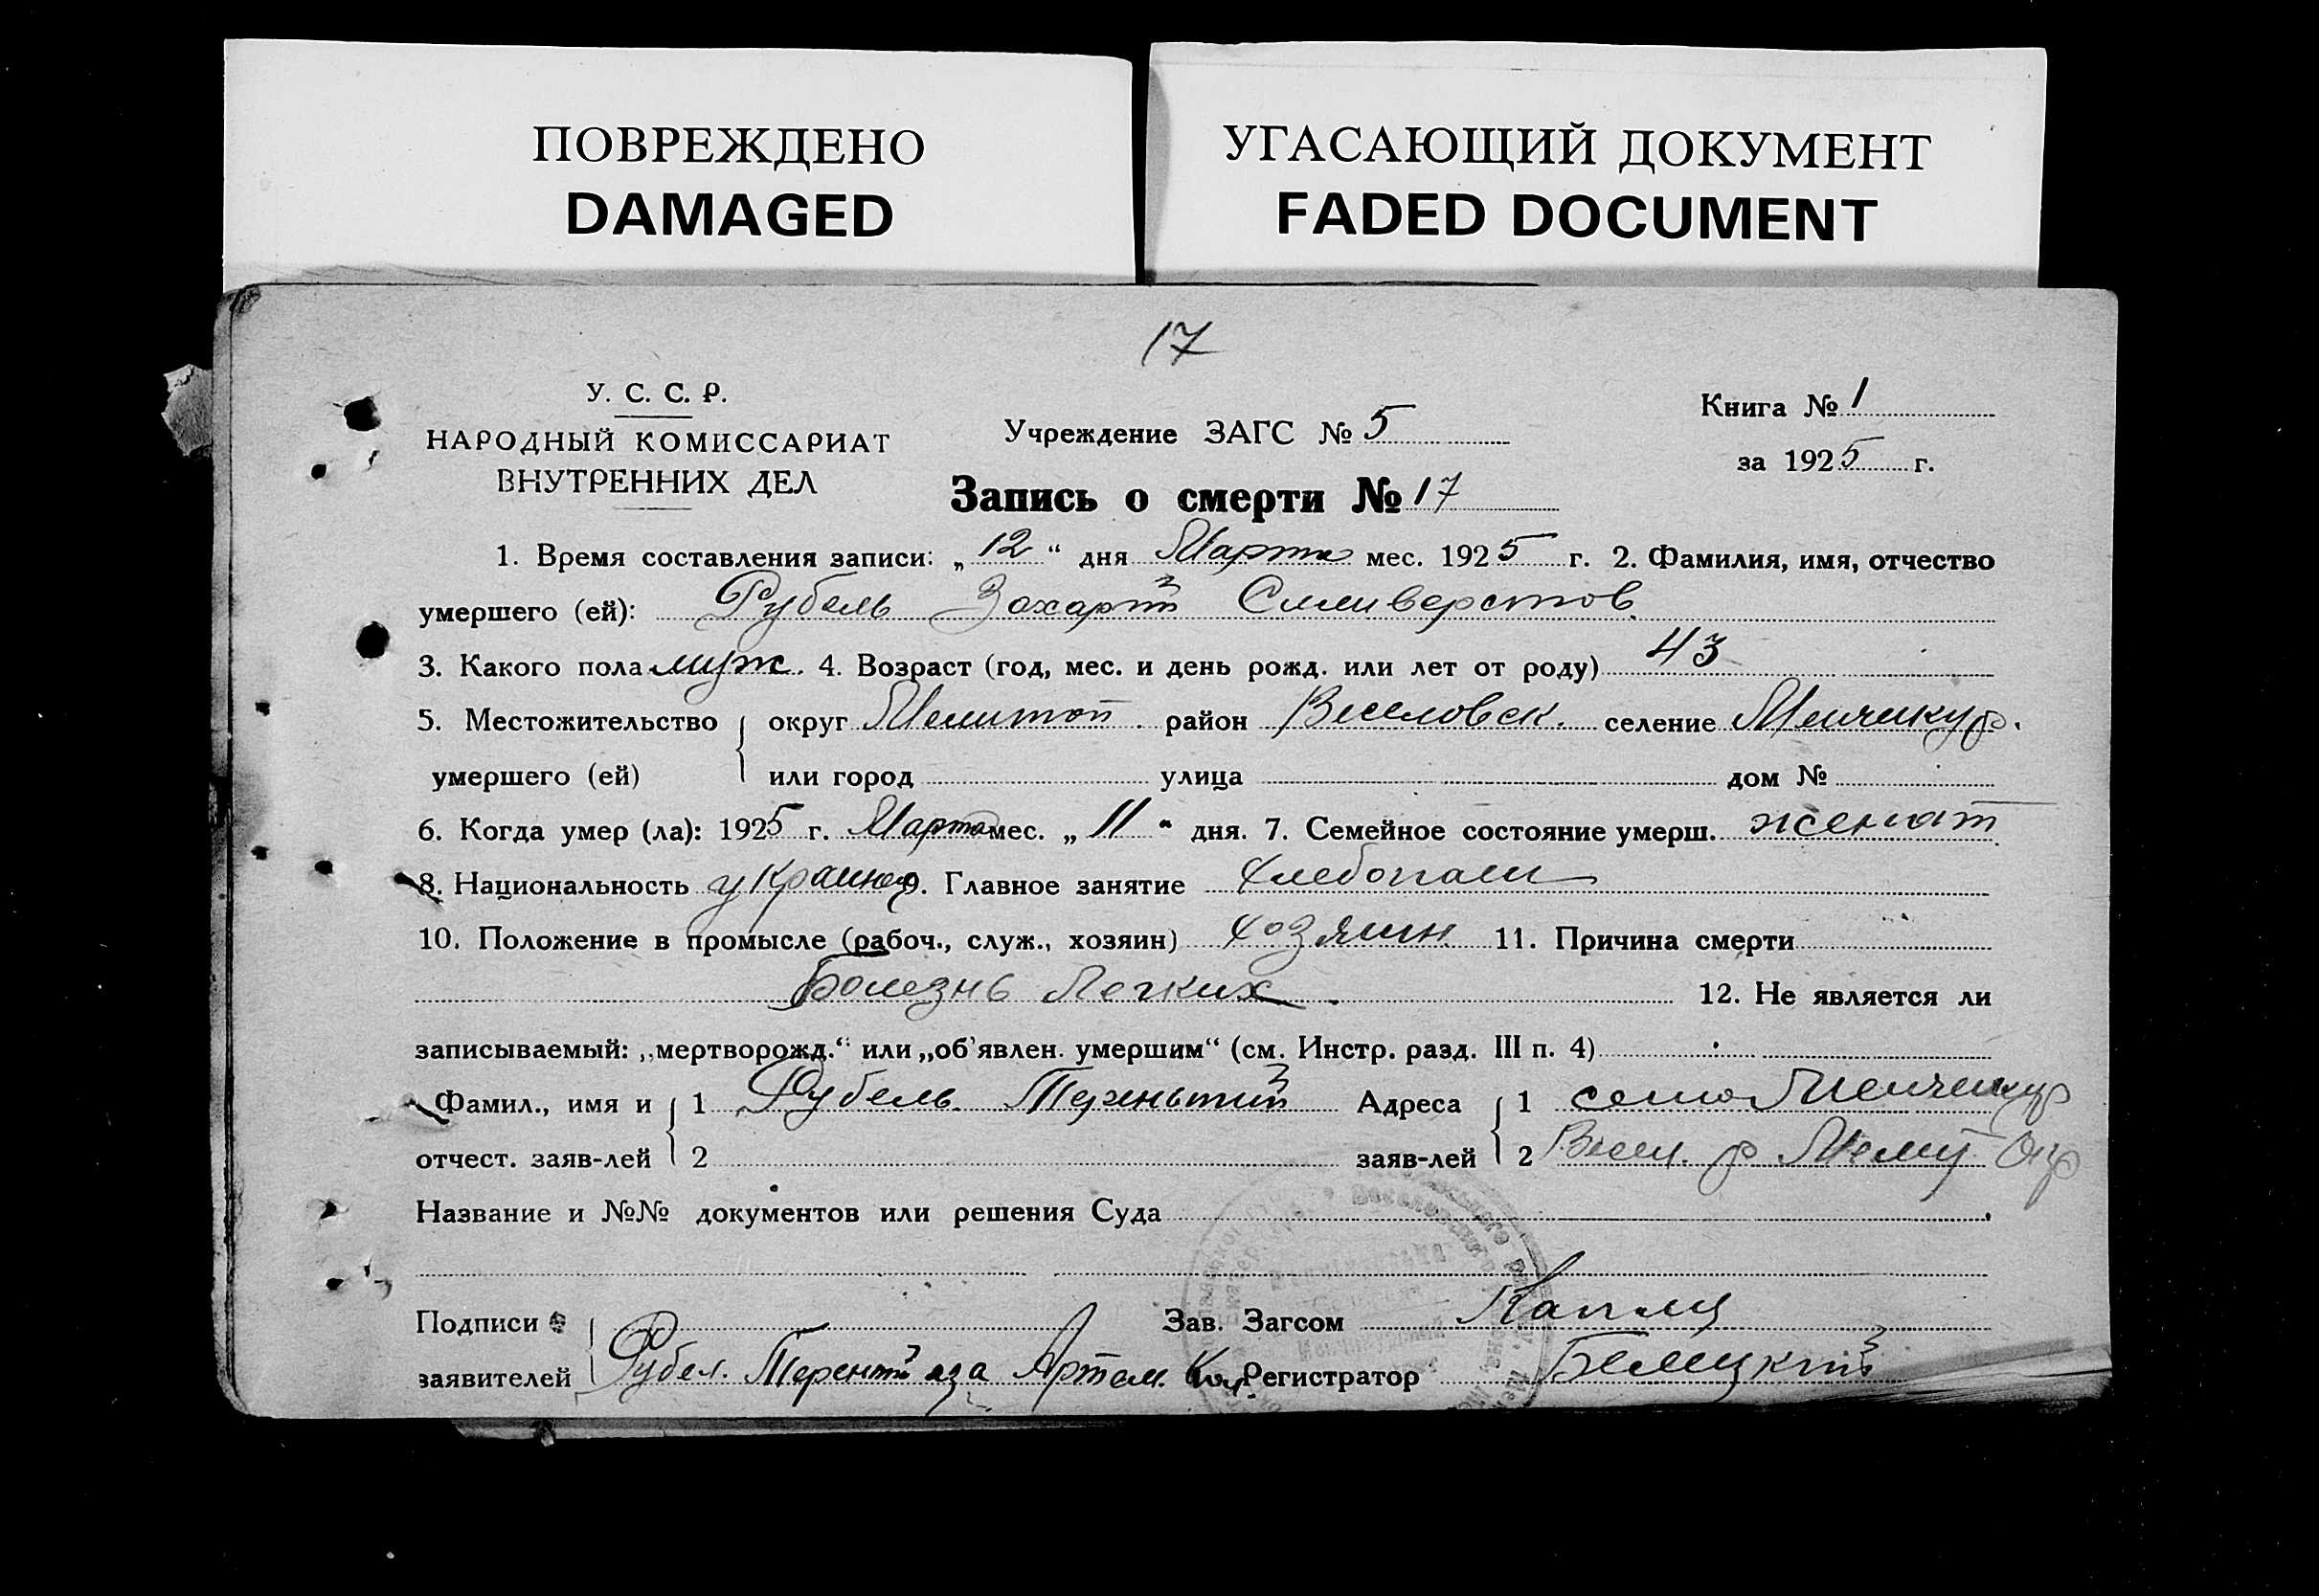 ПОВРЕЖДЕНО
DAMAGED
УГАСАЮЩИЙ ДОКУМЕНТ
FADED DOCUMENT
17
У. С. С. Р.
НАРОДНЫЙ КОМИССАРИАТ
ВНУТРЕННИХ ДЕЛ
Учреждение ЗАГС № 5
Книга № 1
за 1925 г.
Запись о смерти № 17
1. Время составления записи: „12“ дня Марта мес. 1925 г. 2. Фамилия, имя, отчество
умершего (ей): Рубель Захарий Силиверстов
3. Какого пола муж. 4. Возраст (год, мес. и день рожд. или лет от роду) 43
5. Местожительство округ Мелитоп. район Веселовск. селение Менчикур.
умершего (ей) или город улица дом №
6. Когда умер (ла): 1925 г. Марта мес. „11“ дня. 7. Семейное состояние умерш. женат
8. Национальность украинец 9. Главное занятие хлебопаш
10. Положение в промысле (рабоч., служ., хозяин) хозяин 11. Причина смерти
Болезнь Легких
12. Не является ли
записываемый: „мертворожд.“ или „об'явлен. умершим“ (см. Инстр. разд. III п. 4)
Фамил., имя и 1 Рубель Терентий Адреса 1 село Менчекур
отчест. заяв-лей 2 заяв-лей 2 Весел. р Мелит Окр
Название и №№ документов или решения Суда
Подписи Зав. Загсом
заявителей Рубел. Терентий аза Артем. Регистратор Белецкий